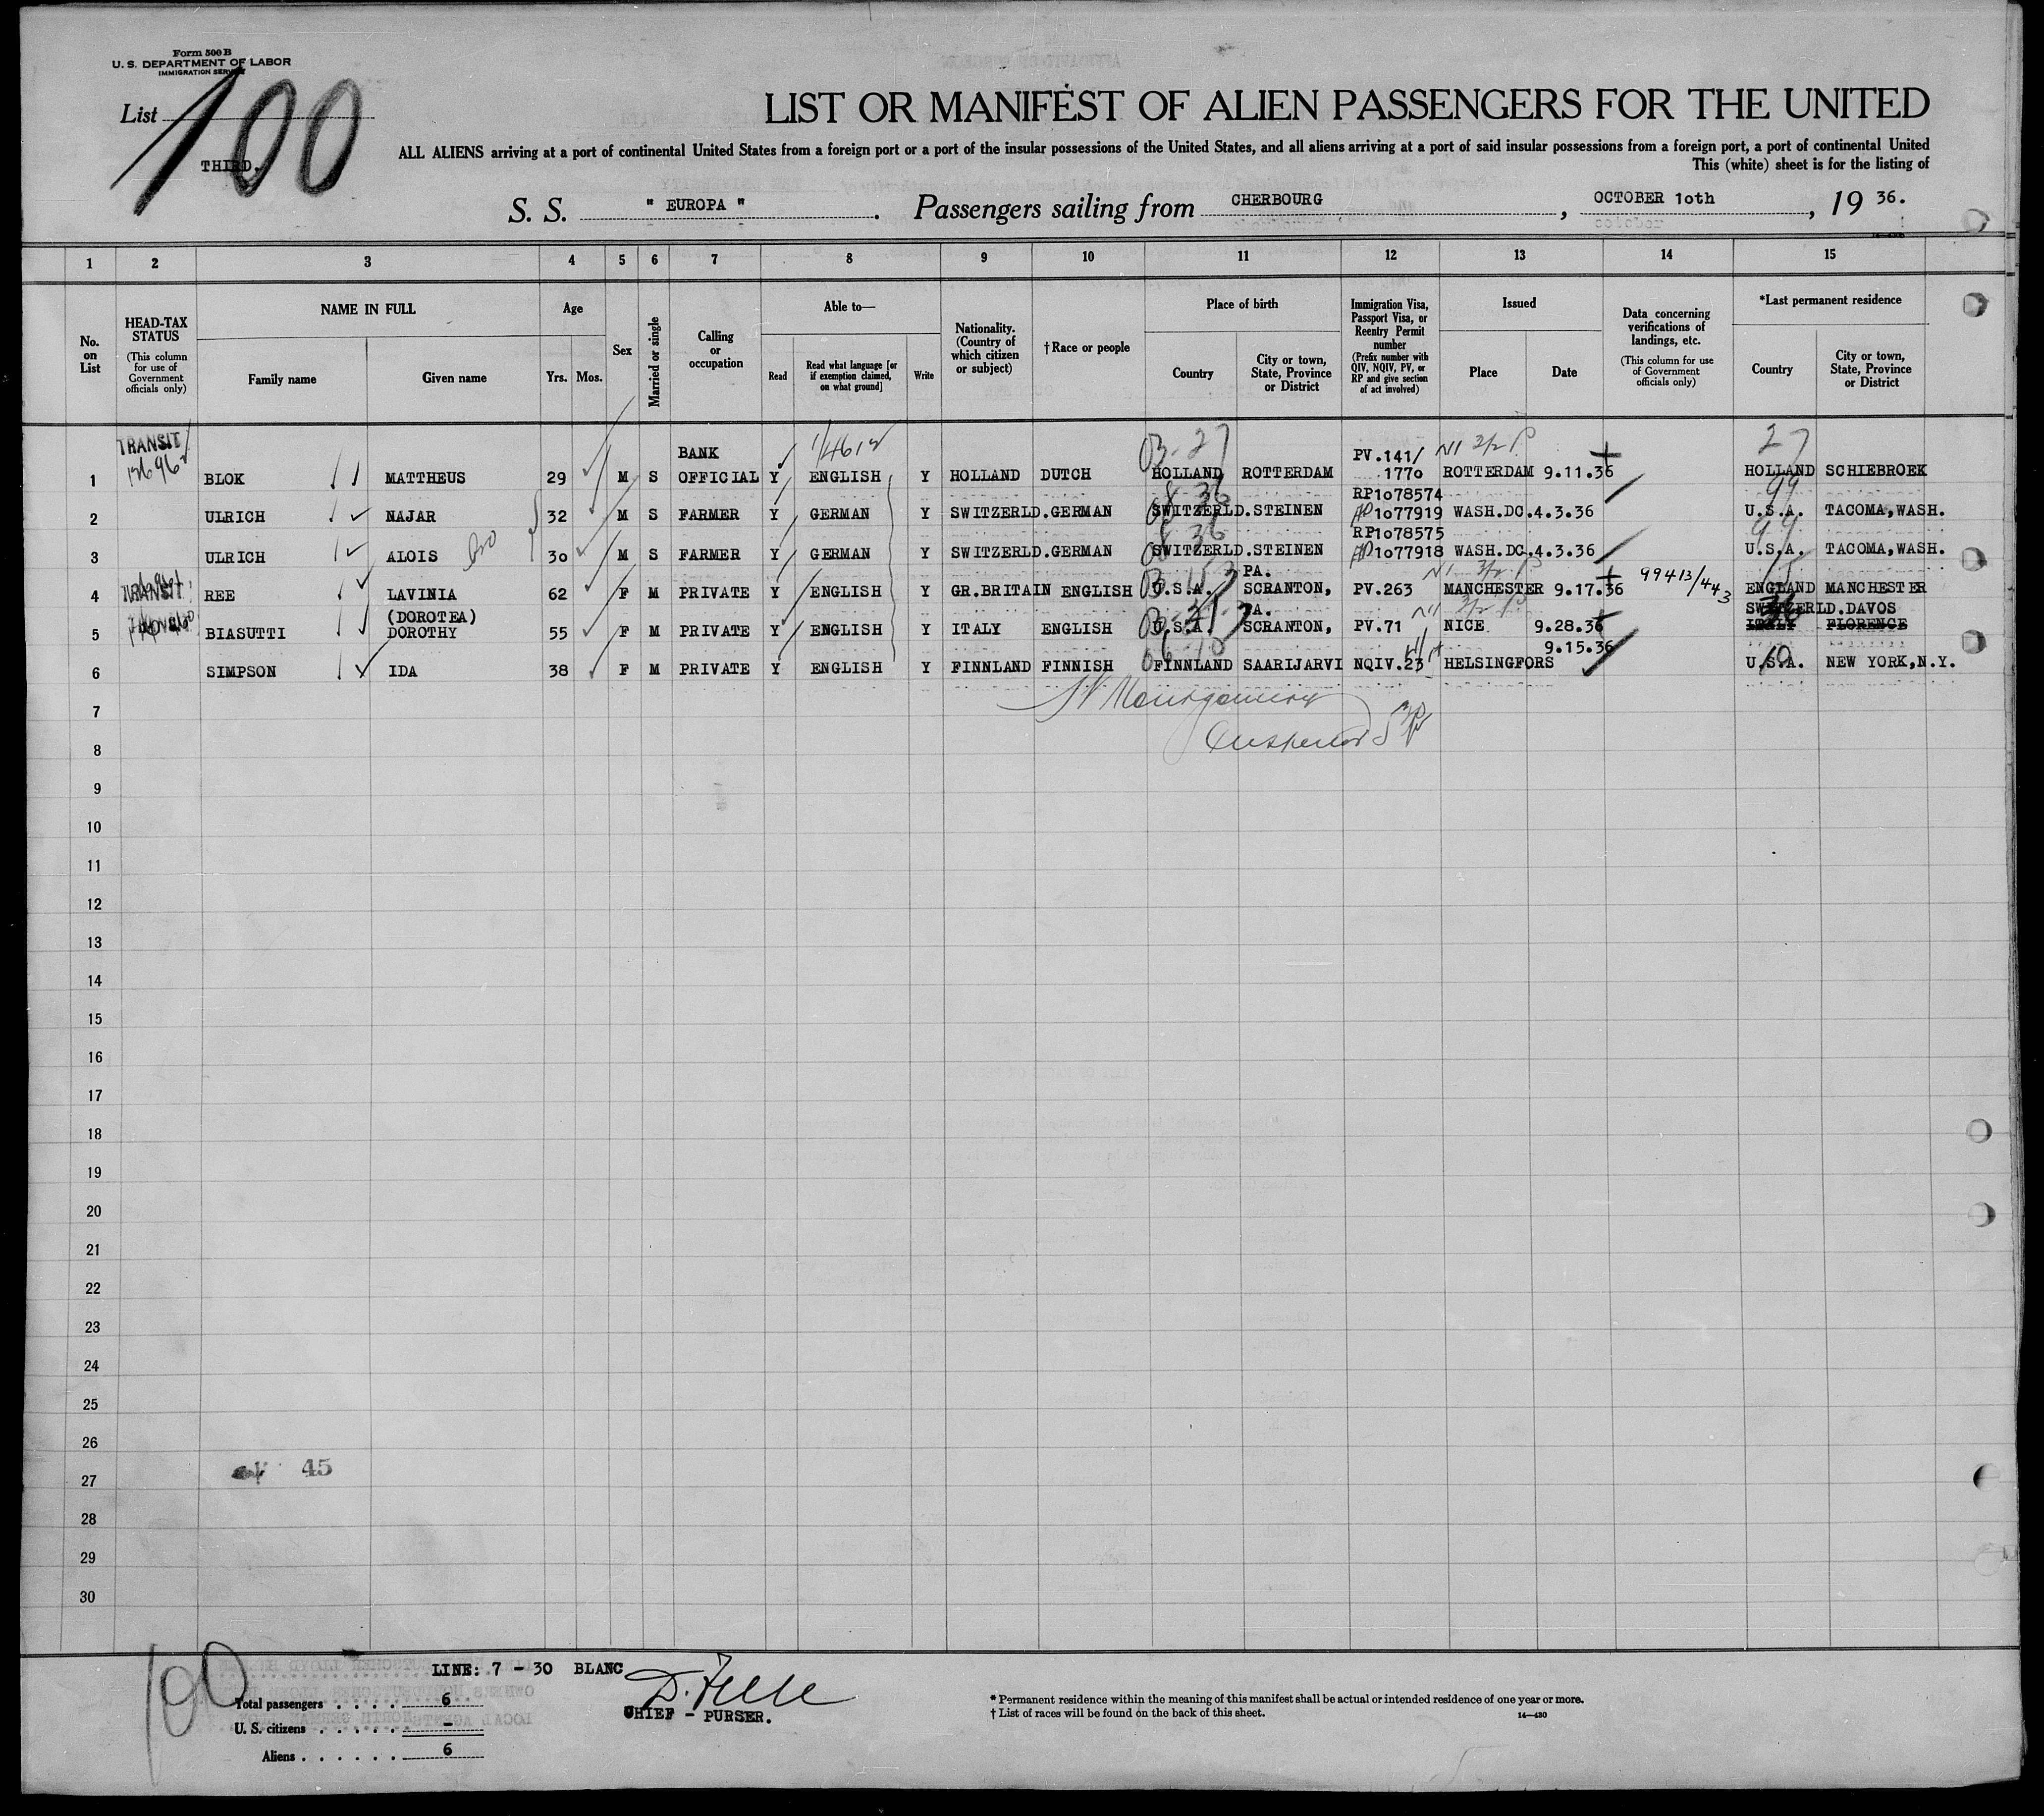 Form 500 B
U. S. DEPARTMENT OF LABOR
IMMIGRATION SERVICE
List 100
THIRD.
LIST OR MANIFEST OF ALIEN PASSENGERS FOR THE UNITED
ALL ALIENS arriving at a port of continental United States from a foreign port or a port of the insular possessions of the United States, and all aliens arriving at a port of said insular possessions from a foreign port, a port of continental United
This (white) sheet is for the listing of
S. S. " EUROPA " . Passengers sailing from CHERBOURG , OCTOBER 1oth , 19 36.
1 2 3 4 5 6 7 8 9 10 11 12 13 14 15
No. on List
HEAD-TAX STATUS
(This column for use of Government officials only)
NAME IN FULL
Family name Given name
Age
Yrs. Mos.
Sex
Married or single
Calling or occupation
Able to—
Read
Read what language [or if exemption claimed, on what ground]
Write
Nationality. (Country of which citizen or subject)
† Race or people
Place of birth
Country
City or town, State, Province or District
Immigration Visa, Passport Visa, or Reentry Permit number
(Prefix number with QIV, NQIV, PV, or RP and give section of act involved)
Issued
Place Date
Data concerning verifications of landings, etc.
(This column for use of Government officials only)
*Last permanent residence
Country
City or town, State, Province or District
TRANSIT BANK 03-27 PV.141/ 27
1 BLOK MATTHEUS 29 M S OFFICIAL Y ENGLISH Y HOLLAND DUTCH HOLLAND ROTTERDAM 177o ROTTERDAM 9.11.36 HOLLAND SCHIEBROEK
RP1o78574 99
2 ULRICH NAJAR 32 M S FARMER Y GERMAN Y SWITZERLD. GERMAN SWITZERLD. STEINEN 1o77919 WASH.DC. 4.3.36 U.S.A. TACOMA,WASH.
RP1o78575 99
3 ULRICH ALOIS 3o M S FARMER Y GERMAN Y SWITZERLD. GERMAN SWITZERLD. STEINEN 1o77918 WASH.DC. 4.3.36 U.S.A. TACOMA,WASH.
PA.
4 TRANSIT REE LAVINIA 62 F M PRIVATE Y ENGLISH Y GR.BRITAIN ENGLISH U.S.A. SCRANTON, PV.263 MANCHESTER 9.17.36 99413/443 ENGLAND MANCHESTER
(DOROTEA) PA. SWITZERLD.DAVOS
5 BIASUTTI DOROTHY 55 F M PRIVATE Y ENGLISH Y ITALY ENGLISH U.S.A. SCRANTON, PV.71 NICE 9.28.36 ITALY FLORENCE
9.15.36
6 SIMPSON IDA 38 F M PRIVATE Y ENGLISH Y FINNLAND FINNISH FINNLAND SAARIJARVI NQIV.23 HELSINGFORS U.S.A. NEW YORK,N.Y.
7
8
9
10
11
12
13
14
15
16
17
18
19
20
21
22
23
24
25
26
27 45
28
29
30
100
LINE: 7 - 3o BLANC
Total passengers . . . . 6
U. S. citizens . . . . . . -
Aliens . . . . . . 6
CHIEF - PURSER.
* Permanent residence within the meaning of this manifest shall be actual or intended residence of one year or more.
† List of races will be found on the back of this sheet.
14—430